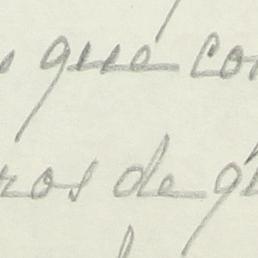 que con
ros de g